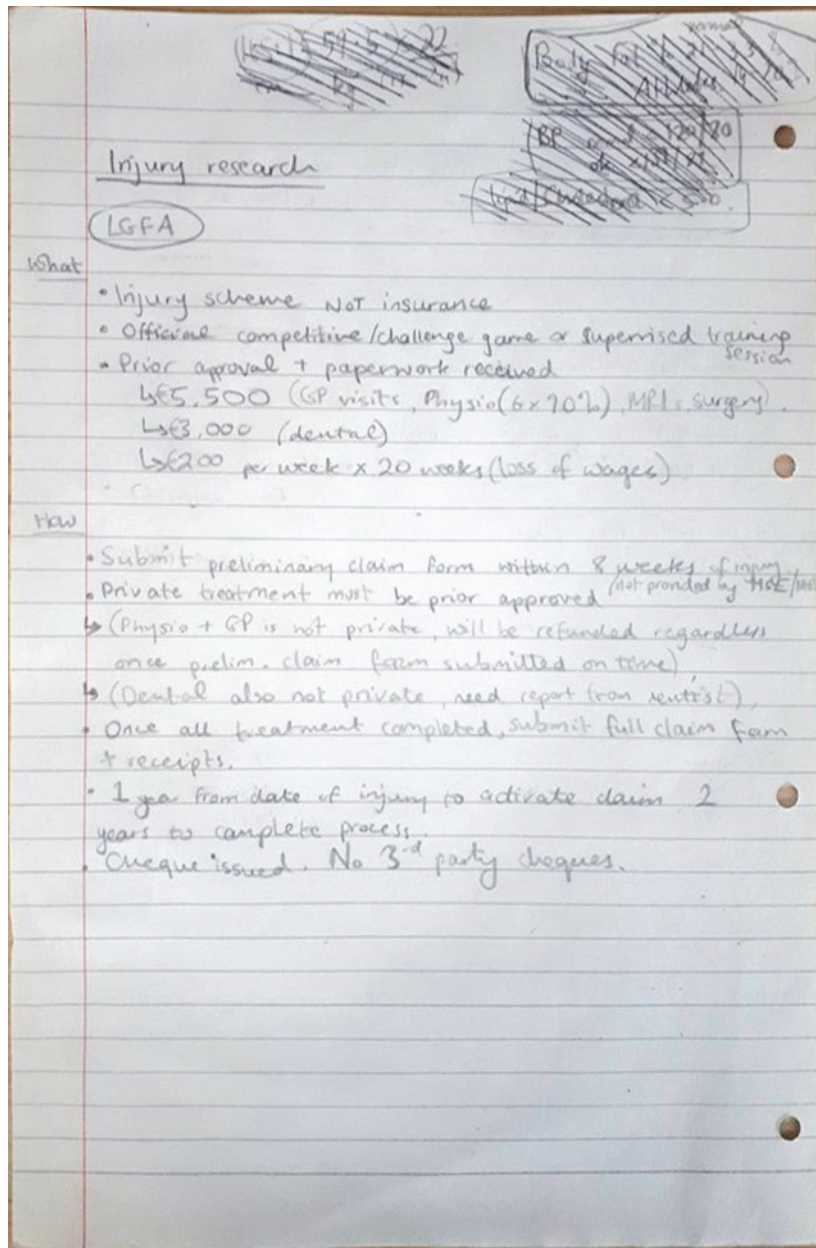 Injury research
LGFA
What
• Injury scheme NOT insurance
• Official competitive/challenge game or supervised training
session
• Prior approval + paperwork received
↳€5,500 (GP visits, Physio(6x70%), MRIs, surgery).
↳€3,000 (dental)
↳€200 per week x 20 weeks (loss of wages)
How
• Submit preliminary claim form within 8 weeks of injury
• Private treatment must be prior approved (not provided by HSE/
↳ (Physio + GP is not private, will be refunded regardless
once prelim. claim form submitted on time),
↳ (Dental also not private, need report from dentist),
• Once all treatment completed, submit full claim form
+ receipts.
• 1 year from date of injury to activate claim 2
years to complete process.
• Cheque issued. No 3rd party cheques.